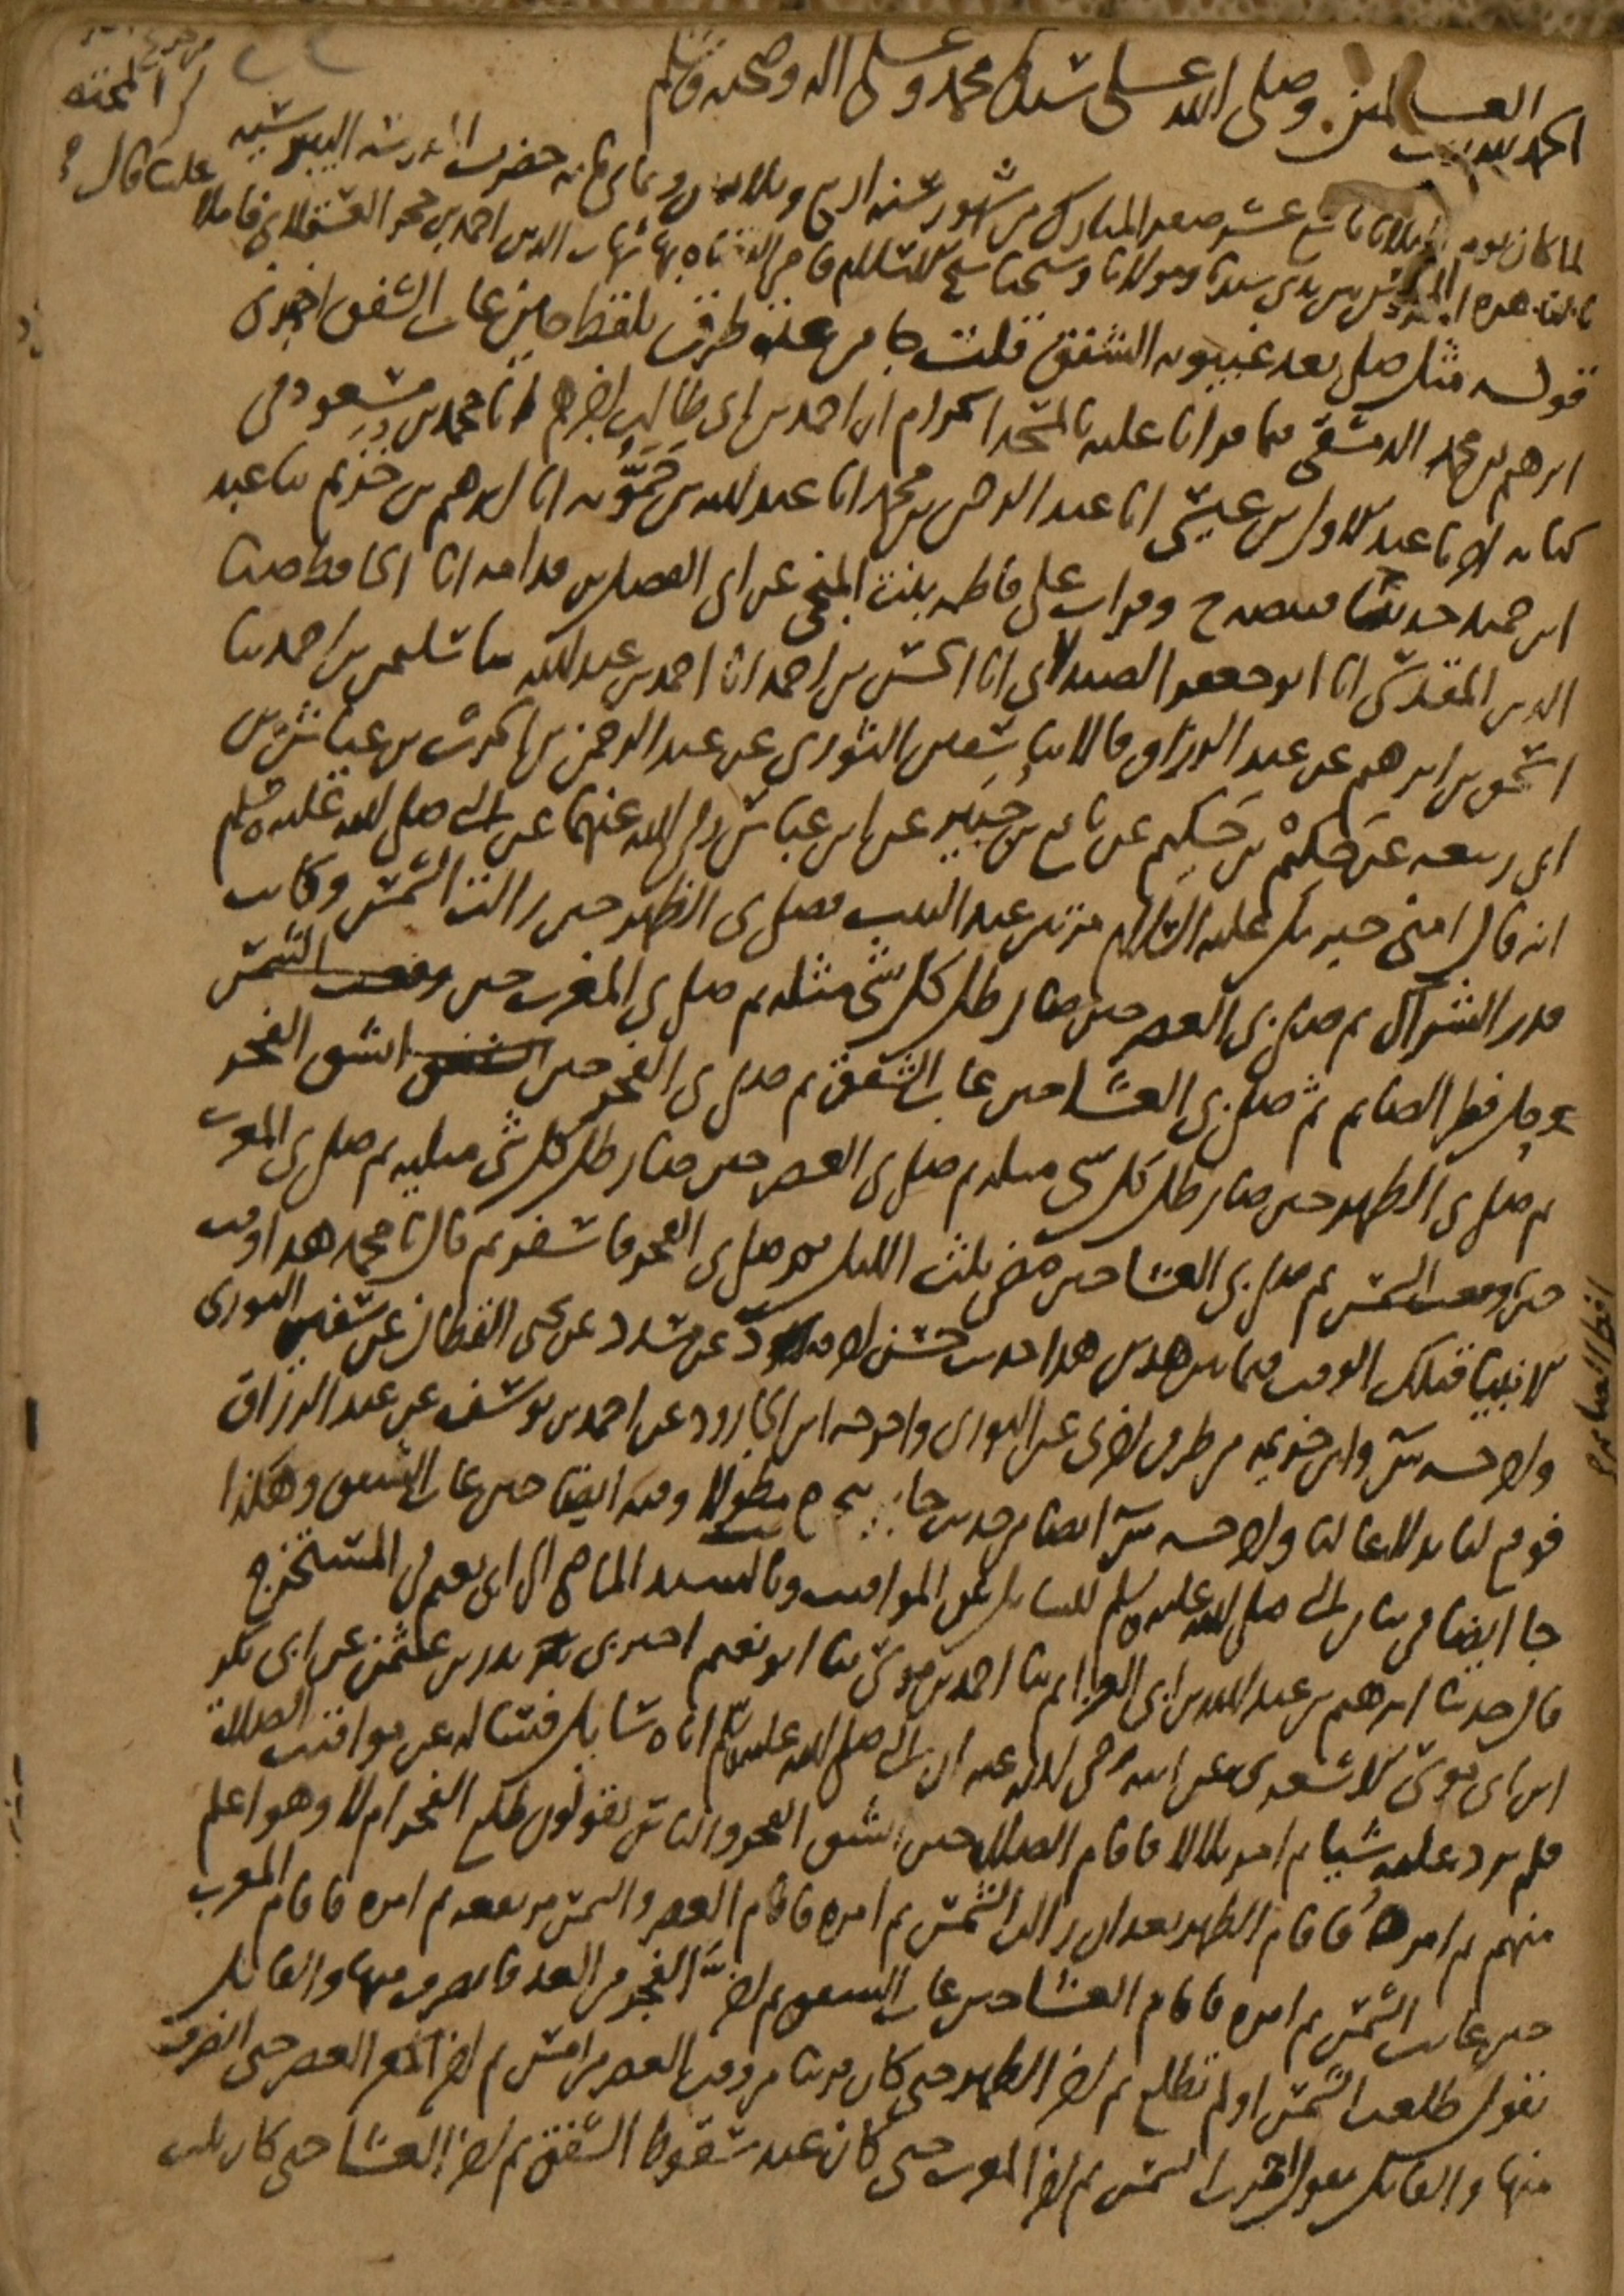 الحمد لله رب العالمين وصلى الله على سيدنا محمد وعلى اله وصحبه وسلم
لما كان يوم الثلاثا تاسع عشر صفر المبارك من شهور سنه اربع وثلاثين وثماني مايه حضرت المدرسه البيبرسيه
المدرس بين يدي سيدنا ومولانا وشيخنا شيخ الاسلام قاضي القضاه شهاب الدين احمد بن حجر العسقلاني فاملا علينا قال
قوله مثل صلى بعد غيبوبه الشفق قلت جا من عده طرق بلفظ حين غاب الشفق اخبرني
ابرهيم بن محمد الدمشقي فيما قرانا عليه بالمسجد الحرام ان احمد بن ابي طالب اخبرهم انا محمد بن مسعود في
كتابه انا عبد الاول بن عيسى انا عبد الرحمن بن محمد انا عبد الله بن حمويه انا ابرهيم بن خزيم ثنا عبد
ابن حميد حدثنا قبيصه ح وقرات على فاطمه بنت المنجى عن ابي الفضل بن قدامه انا الحافظ ضيا
الدين المقدسي انا ابو جعفر الصيدلاني انا الحسن بن احمد انا احمد بن عبد الله ثنا سليمن بن احمد ثنا
اسحق بن ابرهيم عن عبد الرزاق قالا ثنا سفين الثوري عن عبد الرحمن بن الحرث بن عياش بن
ابي ربيعه عن حكيم بن حكيم عن نافع بن جبير عن ابن عباس رضي الله عنهما عن النبي صلى الله عليه وسلم
انه قال امني جبريل عليه السلام مرتين عند البيت فصلى بي الظهر حين زالت الشمس وكانت
قدر الشراك ثم صلى بي العصر حين صار ظل كل شي مثله ثم صلى بي المغرب حين وقعت الشمس
فطر الصايم ثم صلى بي العشا حين غاب الشفق ثم صلى بي الفجر حين الشفق انشق الفجر
ثم صلى بي الظهر حين صار ظل كل شي مثله ثم صلى بي العصر حين صار ظل كل شي مثليه ثم صلى بي المغرب
حين وقعت الشمس ثم صلى بي العشا حين مضى ثلث الليل ثم صلى بي الفجر فاسفر ثم قال يا محمد هذا وقت
الانبيا قبلك الوقت فيما بين هذين هذا حديث حسن عن مسدد عن يحيى القطان عن سفين الثوري
وابن خزيمه من طرق اخرى عن الثوري واخرجه ابن الجارود عن احمد بن يوسف عن عبد الرزاق
فوقع لنا بدلا عاليا ايضا من حديث جابر مطولا وفيه ايضا حين غاب الشفق وهكذا
جا ايضا في بيان النبي صلى الله عليه وسلم للسايل عن المواقيت وبالسند الماضي الى ابي نعيم في المستخرج
قال حدثنا ابرهيم بن عبد الله بن ابي العزايم ثنا احمد بن موسى ثنا ابو نعيم اخبرني بدر بن عثمن عن ابي بكر
ابن ابي موسى الاشعري عن ابيه رضي الله عنه ان النبي صلى الله عليه وسلم اتاه سايل فساله عن مواقيت الصلاة
فلم يرد عليه شيا ثم امر بلالا فاقام الصلاه حين انشق الفجر والناس يقولون طلع الفجر ام لا وهو اعلم
منهم ثم امره فاقام الظهر بعد ان زالت الشمس ثم امره فاقام العصر والشمس مرتفعه ثم امره فاقام المغرب
حين غابت الشمس ثم امره فاقام العشا حين غاب الشفق ثم اخر الفجر من الغد فانصرف منها والقايل
يقول طلعت الشمس او لم تطلع ثم اخر الظهر حتى كان قريبا من وقت العصر من امس ثم اخر العصر حتى انصرف
منها والقايل يقول احمرت الشمس ثم اخر المغرب حتى كان عند سقوط الشفق ثم اخر العشا حتى كان ثلث
افطر الصايم